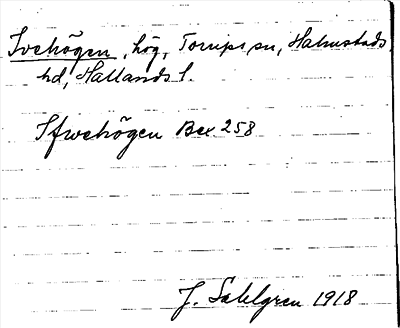 Ivehögen, hög, Torups sn, Halmstads
hd, Hallands l.
Ifwehögen Bex 258
J. Sahlgren 1918